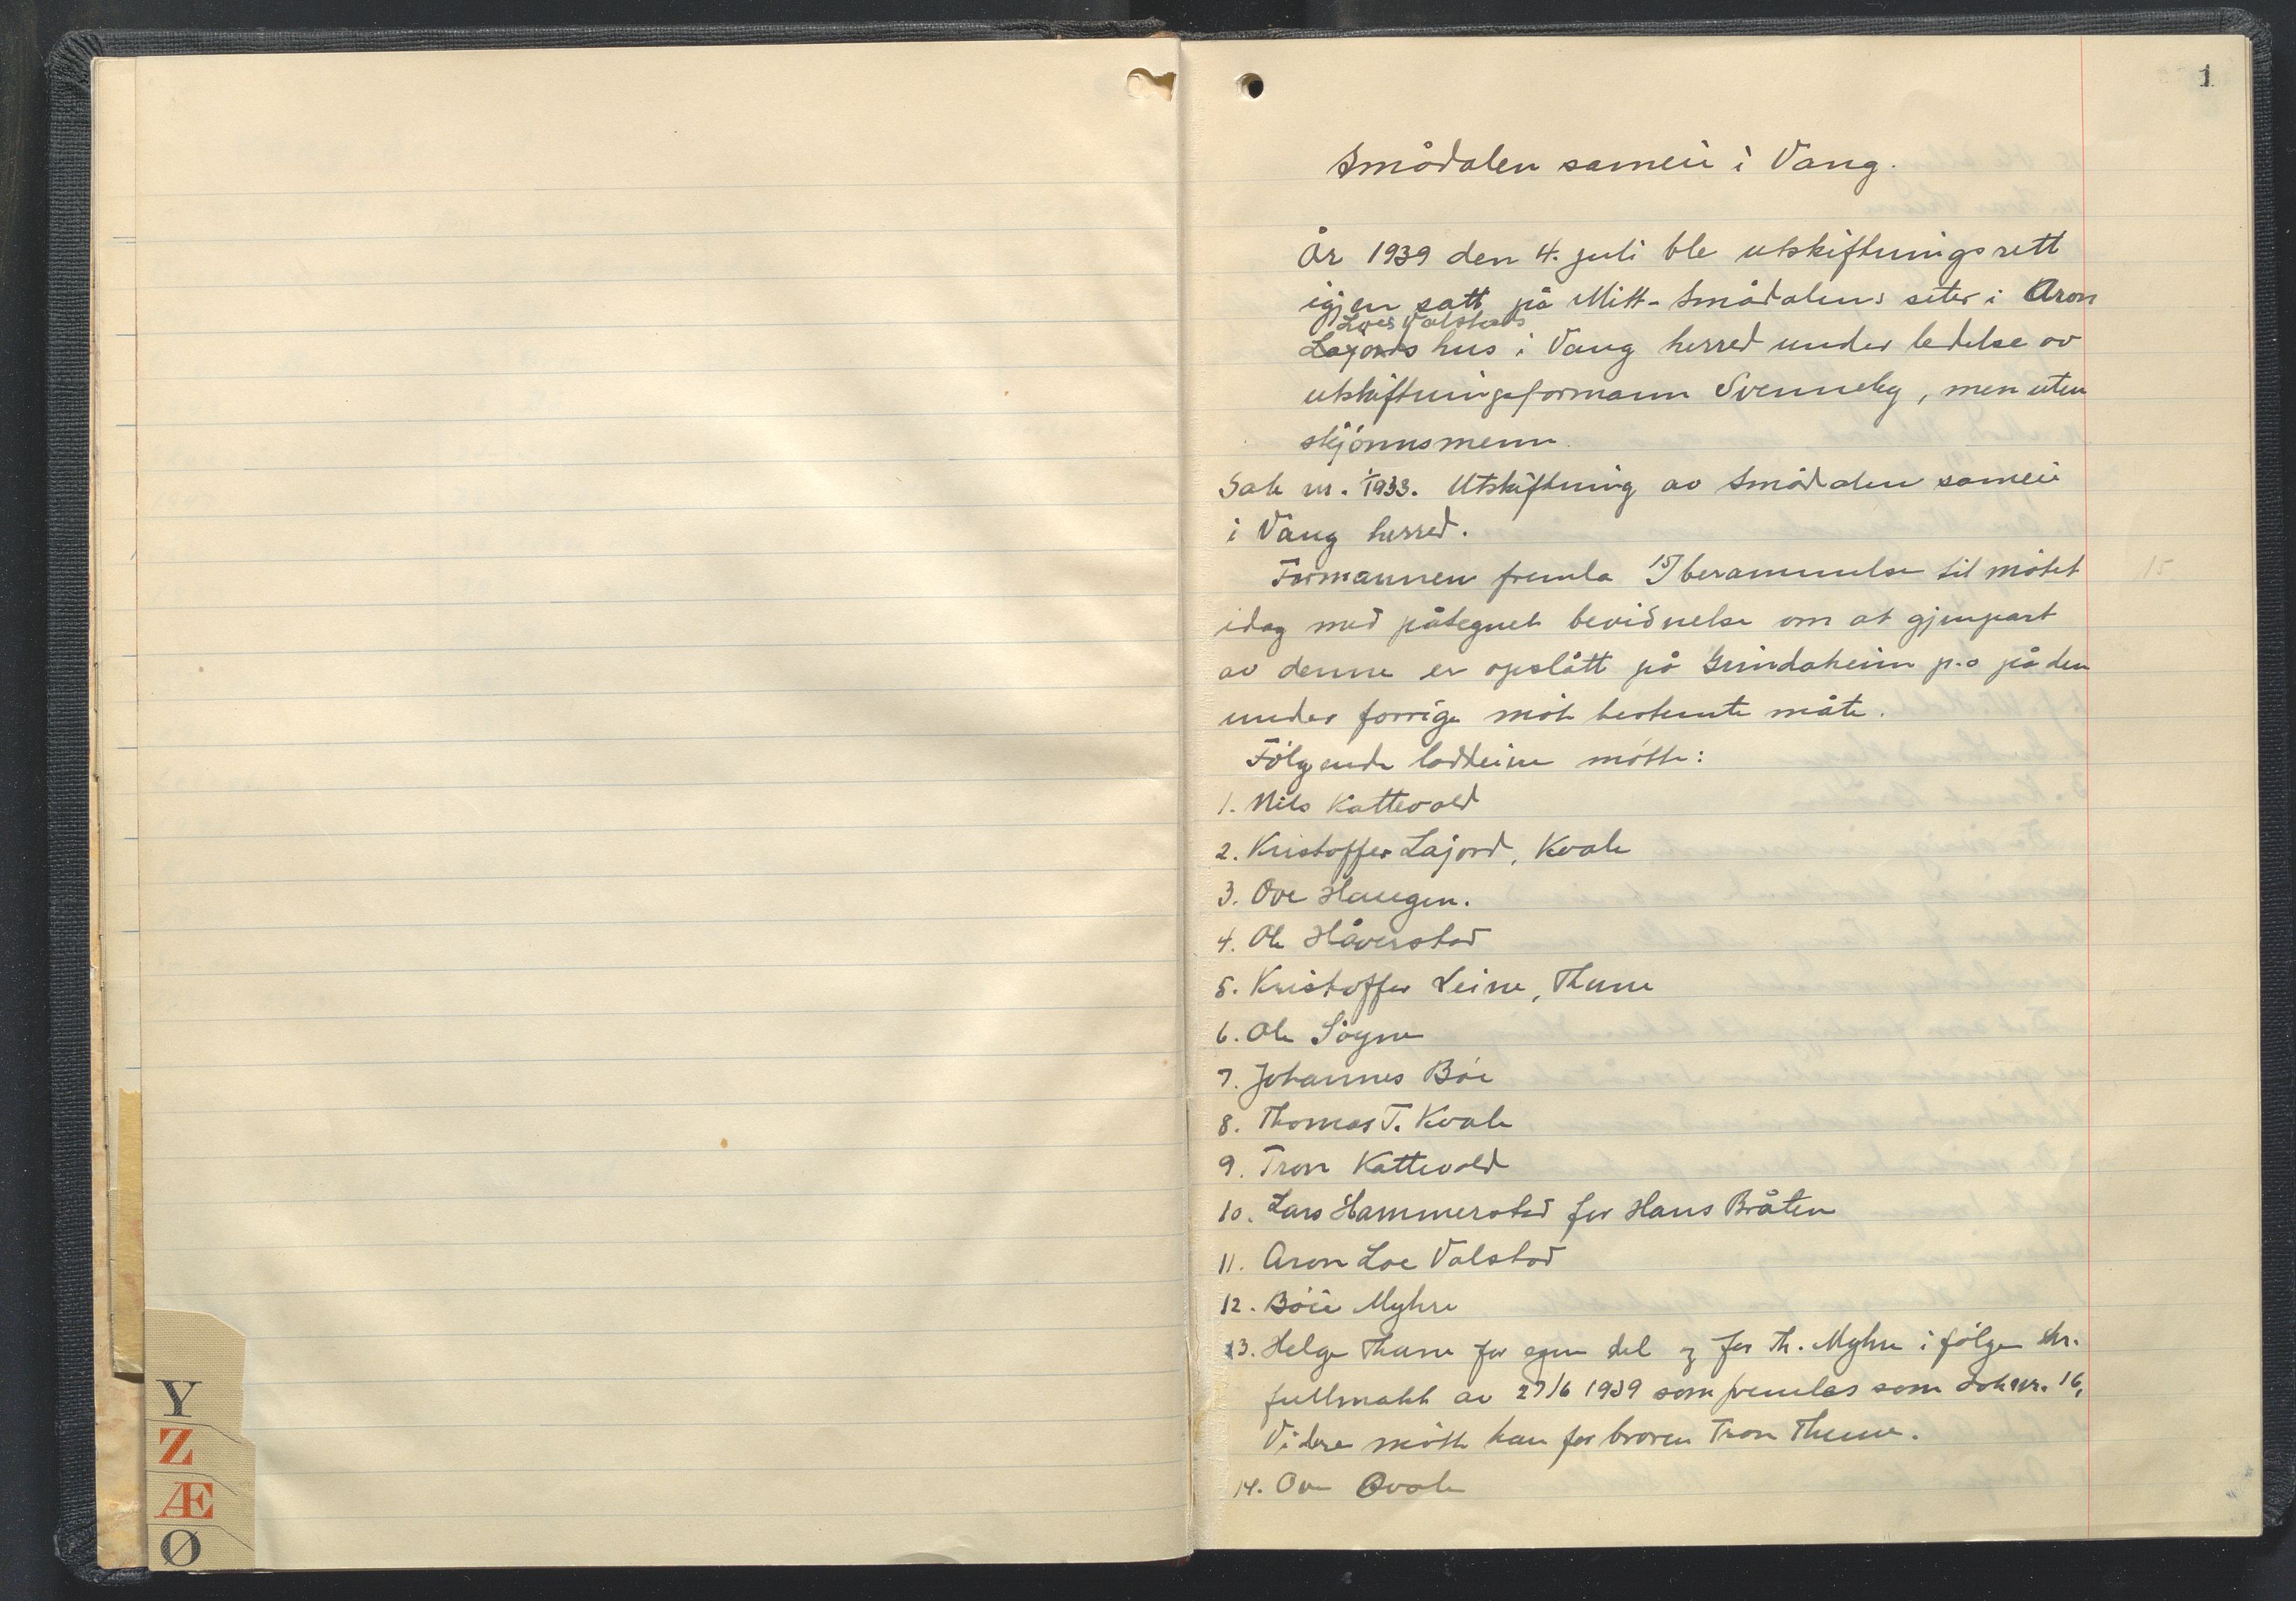 Y
Z
Æ
Ø
1
Smådalen sameie i Vang.
År 1939 den 4. juli ble utskiftningsrett
igjen satt på Mitt-Smådalens seter i Aron
Loes Valstads
Lajords hus i Vang herred under ledelse av
utskiftningsformann Svenneby, men uten
skjönnsmenn.
Sak nr. 1/1933. Utskiftning av Smådalen sameie
i Vang herred.
Formannen fremla 15) berammelse til mötet
15
idag med påtegnet bevidnelse om at gjenpart
av denne er opslått på Grindaheim p.o på den
under forrige möte bestemte måte.
Fölgende loddeiere mötte:
1. Nils Kattevold
2. Kristoffer Lajord, Kvale
3. Ove Haugen.
4. Ole Håverstad
5. Kristoffer Leine, Thune
6. Ole Sögne
7. Johannes Böe
8. Thomas T. Kvale
9. Tron Kattevold
10. Lars Hammerstad for Hans Bråten
11. Aron Loe Valstad
12. Böie Myhre
13. Helge Thune for egen del og for Th. Myhre i fölge skr.
fullmakt av 27/6 1939 som fremlas som dok nr. 16.
Videre mötte han for broren Tron Thune.
14. Ove Kvale